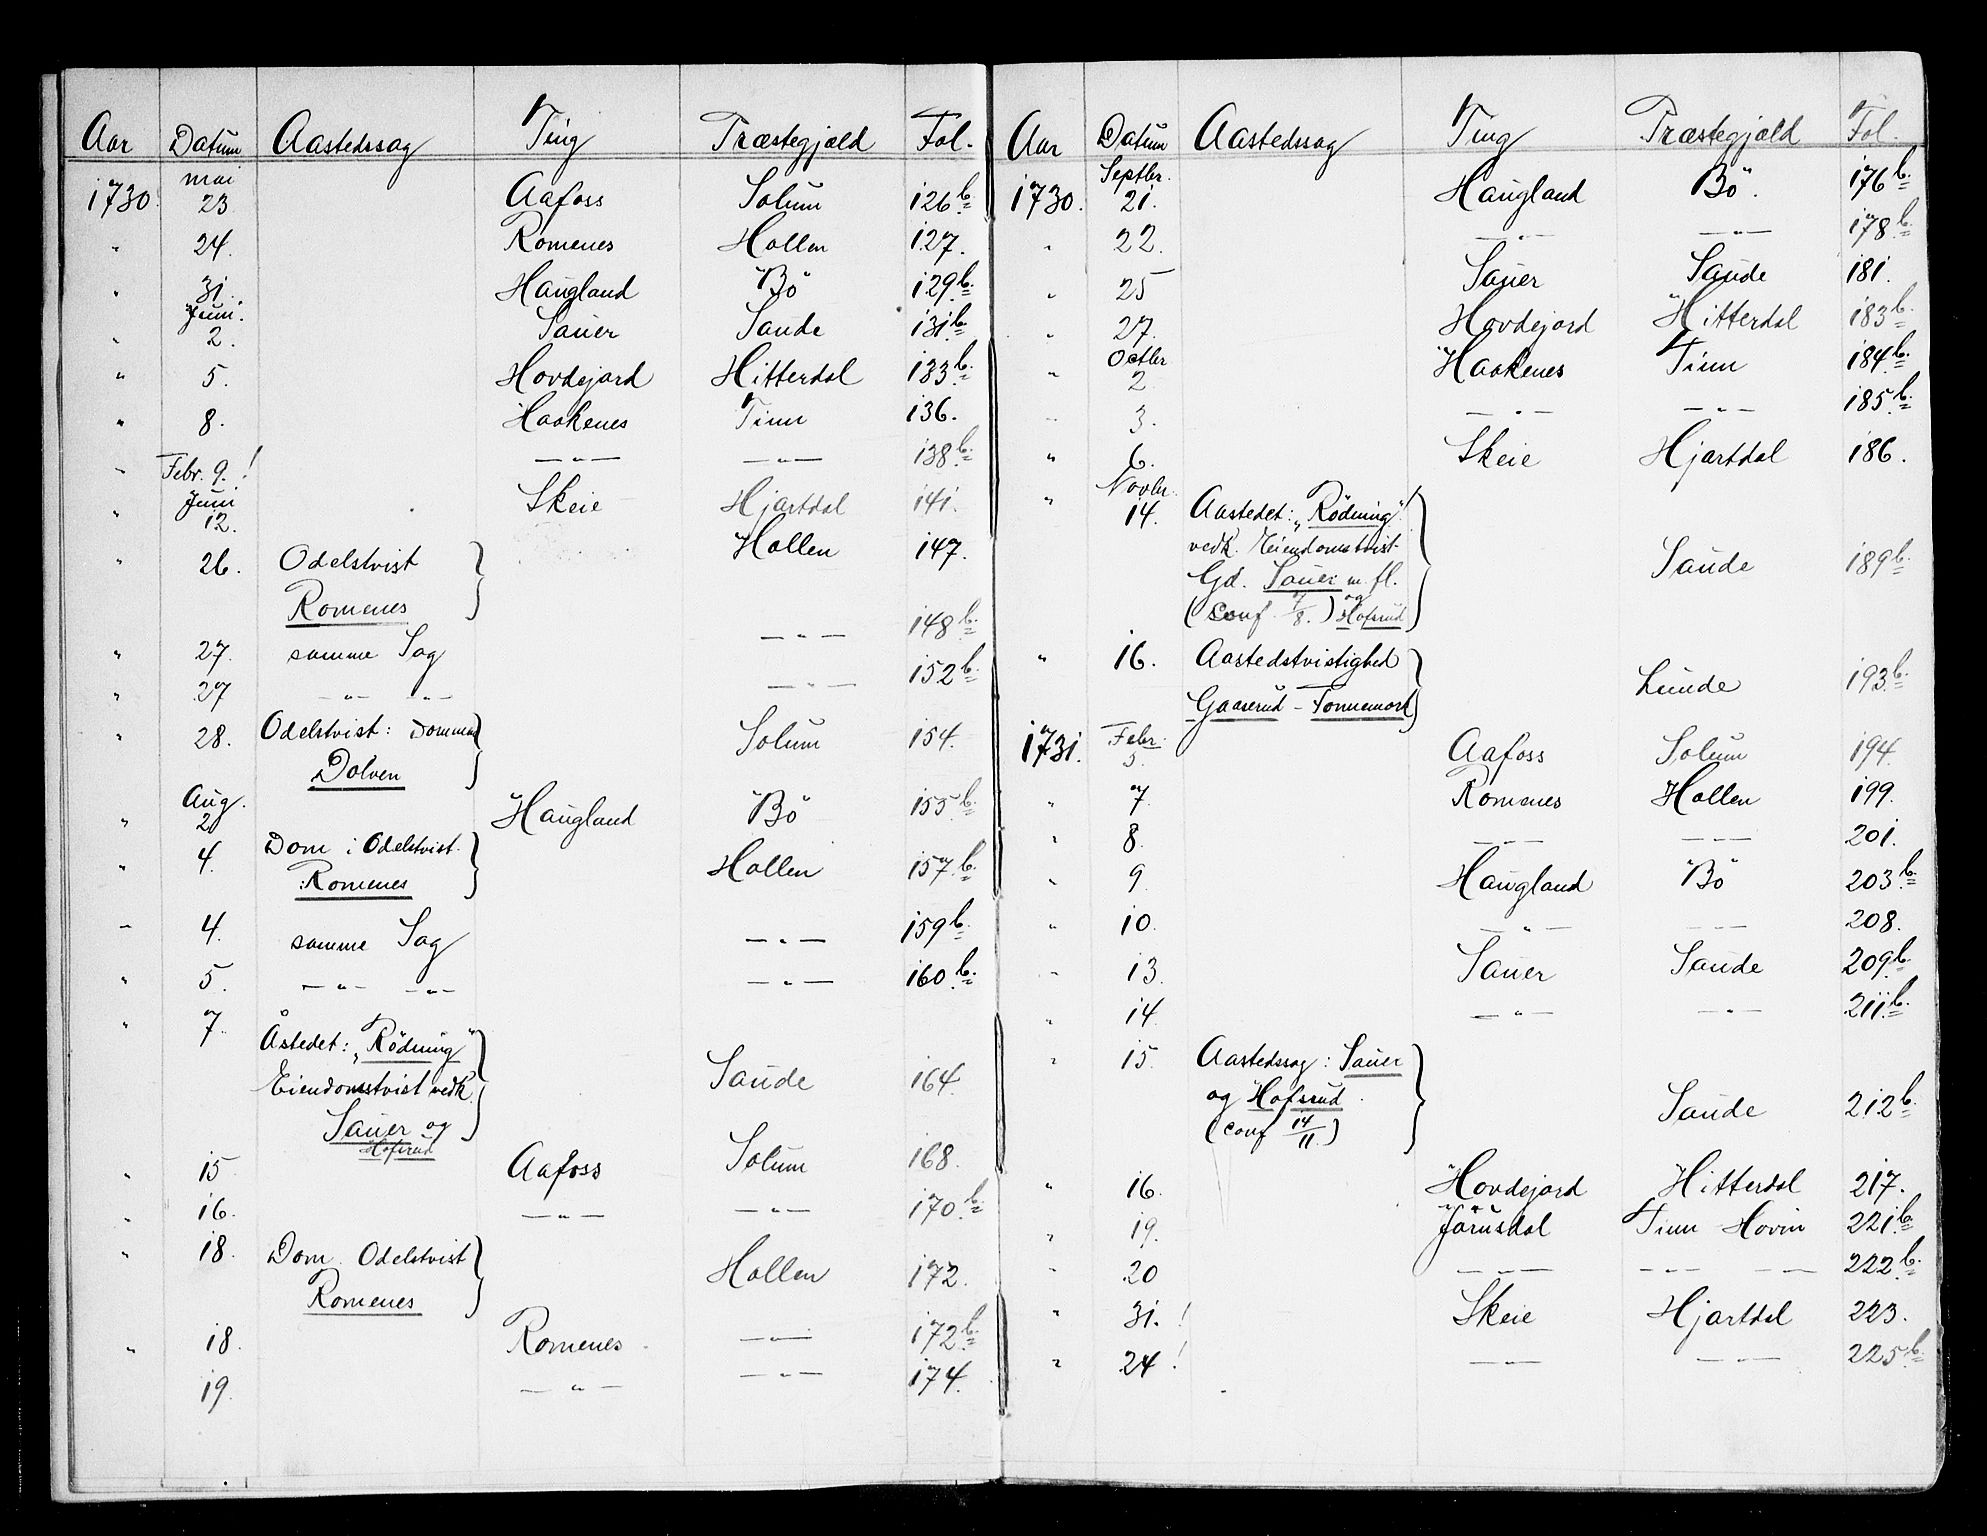 Aar Datum Aastedssag Ting Præstegjæld Fol.
mai
1730. 23 Aafoss Solum 126 b.
" 24. Romenes Hollen 127.
" 31. Haugland Bö 129 b.
Juni.
" 2. Sauer Saude 131 b.
" 5. Hovdejord Hitterdal 133 b.
" 8. Haakenes Tinn 136.
" Febr. 9. ! —"— —"— 138 b.
Juni
" 12. Skeie Hjartdal 141.
" 26. Odelstvist Hollen 147.
Romenes
—"— 148 b.
" 27. samme Sag
" 27 —"— —"— —"— 152 b.
" 28. Odelstvist: Dommen Solum 154.
Dolven
Aug.
" 2 Haugland Bö 155 b.
" 4. Dom i Odelstvist. Hollen 157 b.
Romenes
" 4. samme Sag —"— 159 b.
" 5. —"— —"— —"— 160 b.
" 7. Åstedet: „Rödning"
Eiendomstvist vedk. Saude 164.
Sauer og
Hofsrud
" 15 Aafoss Solum 168.
" 16. —"— —"— 170 b.
" 18. Dom. Odelstvist Hollen 172.
Romenes
" 18. Romenes —"— 172 b.
19. —"— —"— 174.
Aar Datum Aastedssag Ting Præstegjæld Fol.
Septbr.
1730. 21. Haugland Bö. 176 b.
" 22. —"— —"— 178 b.
" 25 Sauer Saude 181.
" 27. Hovdejord Hitterdal 183 b.
Octbr
" 2 Haakenes Tinn 184 b.
" 3. —"— —"— 185 b.
" 6. Skeie Hjartdal 186.
Novbr.
" 14. Aastedet: „Rödning"
vedk. Eiendomstvist
Gd. Sauer m. fl. Saude 189 b.
(conf. 7/8.) og Hofsrud
" 16. Aastedstvistighed Lunde 193 b.
Gaaserud – Tonnemork
1731. Febr. 5. Aafoss Solum 194.
" 7. Romenes Hollen 199.
" 8. —"— —"— 201.
" 9. Haugland Bö 203 b.
" 10. —"— —"— 208.
" 13. Sauer Saude 209 b.
" 14. —"— —"— 211 b.
" 15. Aastedssag: Sauer
og Hofsrud. Saude 212 b.
(conf 14/11.)
" 16. Hovdejord Hitterdal 217.
" 19. Jörusdal Tinn Hovin 221 b.
" 20 —"— —"— —"— 222 b.
" 31. ! Skeie Hjartdal 223.
" 24 ! —"— —"— 225 b.